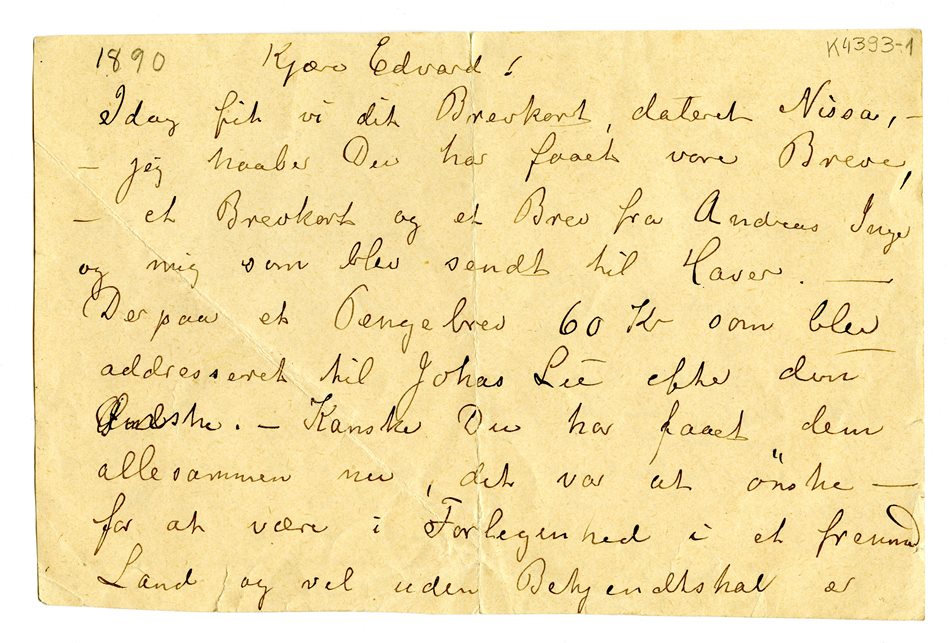 1890 Kjære Edvard! K4393-1
Idag fik vi dit Brevkort, dateret Nissa, –
– jeg haaber Du har faaet vore Breve,
– et Brevkort og et Brev fra Andreas Inger
og mig som blev sendt til Haver. —
Derpaa et Pengebrev 60 Kr som blev
addresseret til Johas Lie efter din
Ønske. – Kanske Du har faaet dem
allesammen nu, det var at önske —
for at være i Forlegenhed i et fremmed
Land og vel uden Bekjendtskab er